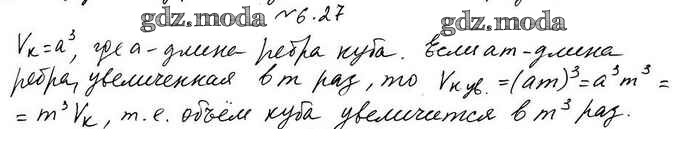 gdz.moda №6.27 gdz.moda
Vк=a³, где a-длина ребра куба. Если am-длина
ребра, увеличенная в m раз, то Vк ув.=(am)³=a³m³=
=m³Vк, т.е. объём куба увеличится в m³ раз.